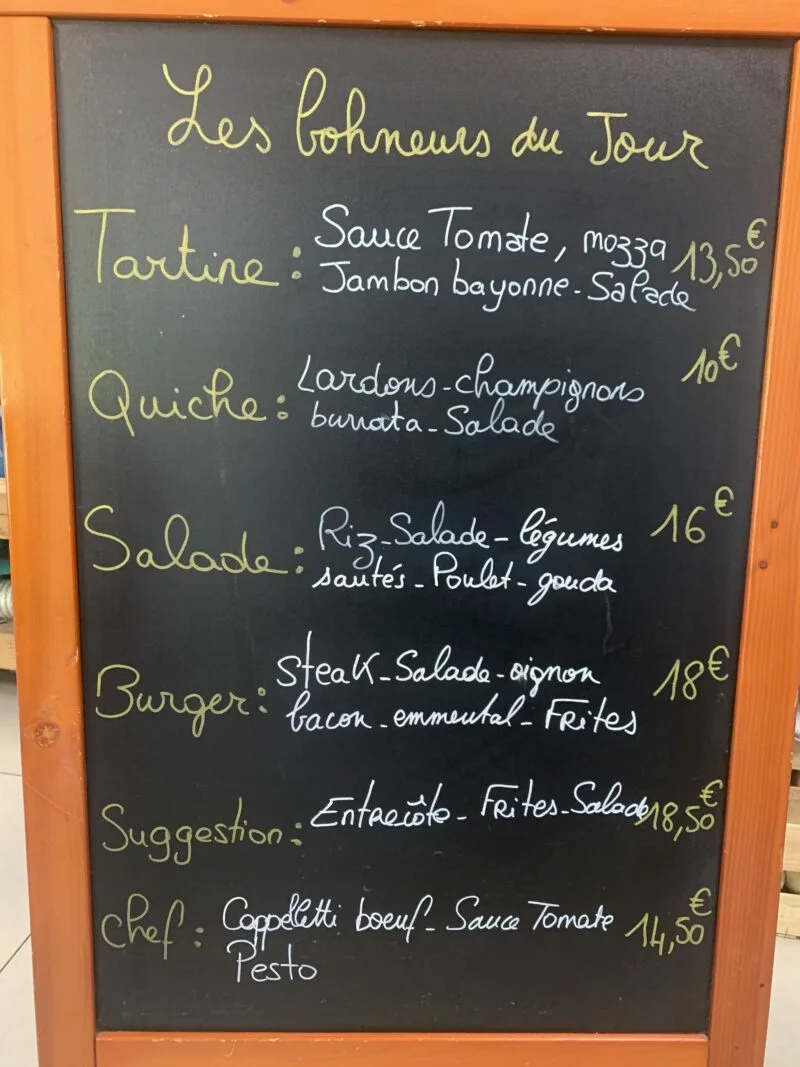 Les bohneurs du Jour
Tartine : Sauce Tomate, mozza 13,50€
Jambon bayonne - Salade
Quiche : Lardons - champignons 10€
burrata - Salade
Salade : Riz - Salade - légumes 16€
sautés - Poulet - gouda
Burger : steak - Salade - oignon 18€
bacon - emmental - Frites
Suggestion : Entrecôte - Frites - Salade 18,50€
chef : Cappeletti boeuf - Sauce Tomate 14,50€
Pesto